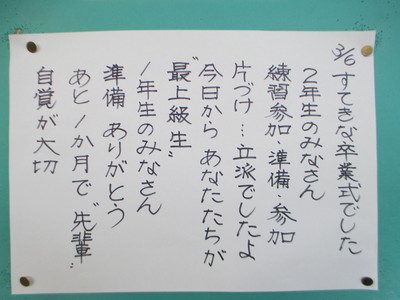 3/6 すてきな卒業式でした
2年生のみなさん
練習参加・準備・参加
片づけ…立派でしたよ
今日から あなたたちが
"最上級生"
1年生のみなさん
準備 ありがとう
あと1か月で "先輩"
自覚が大切